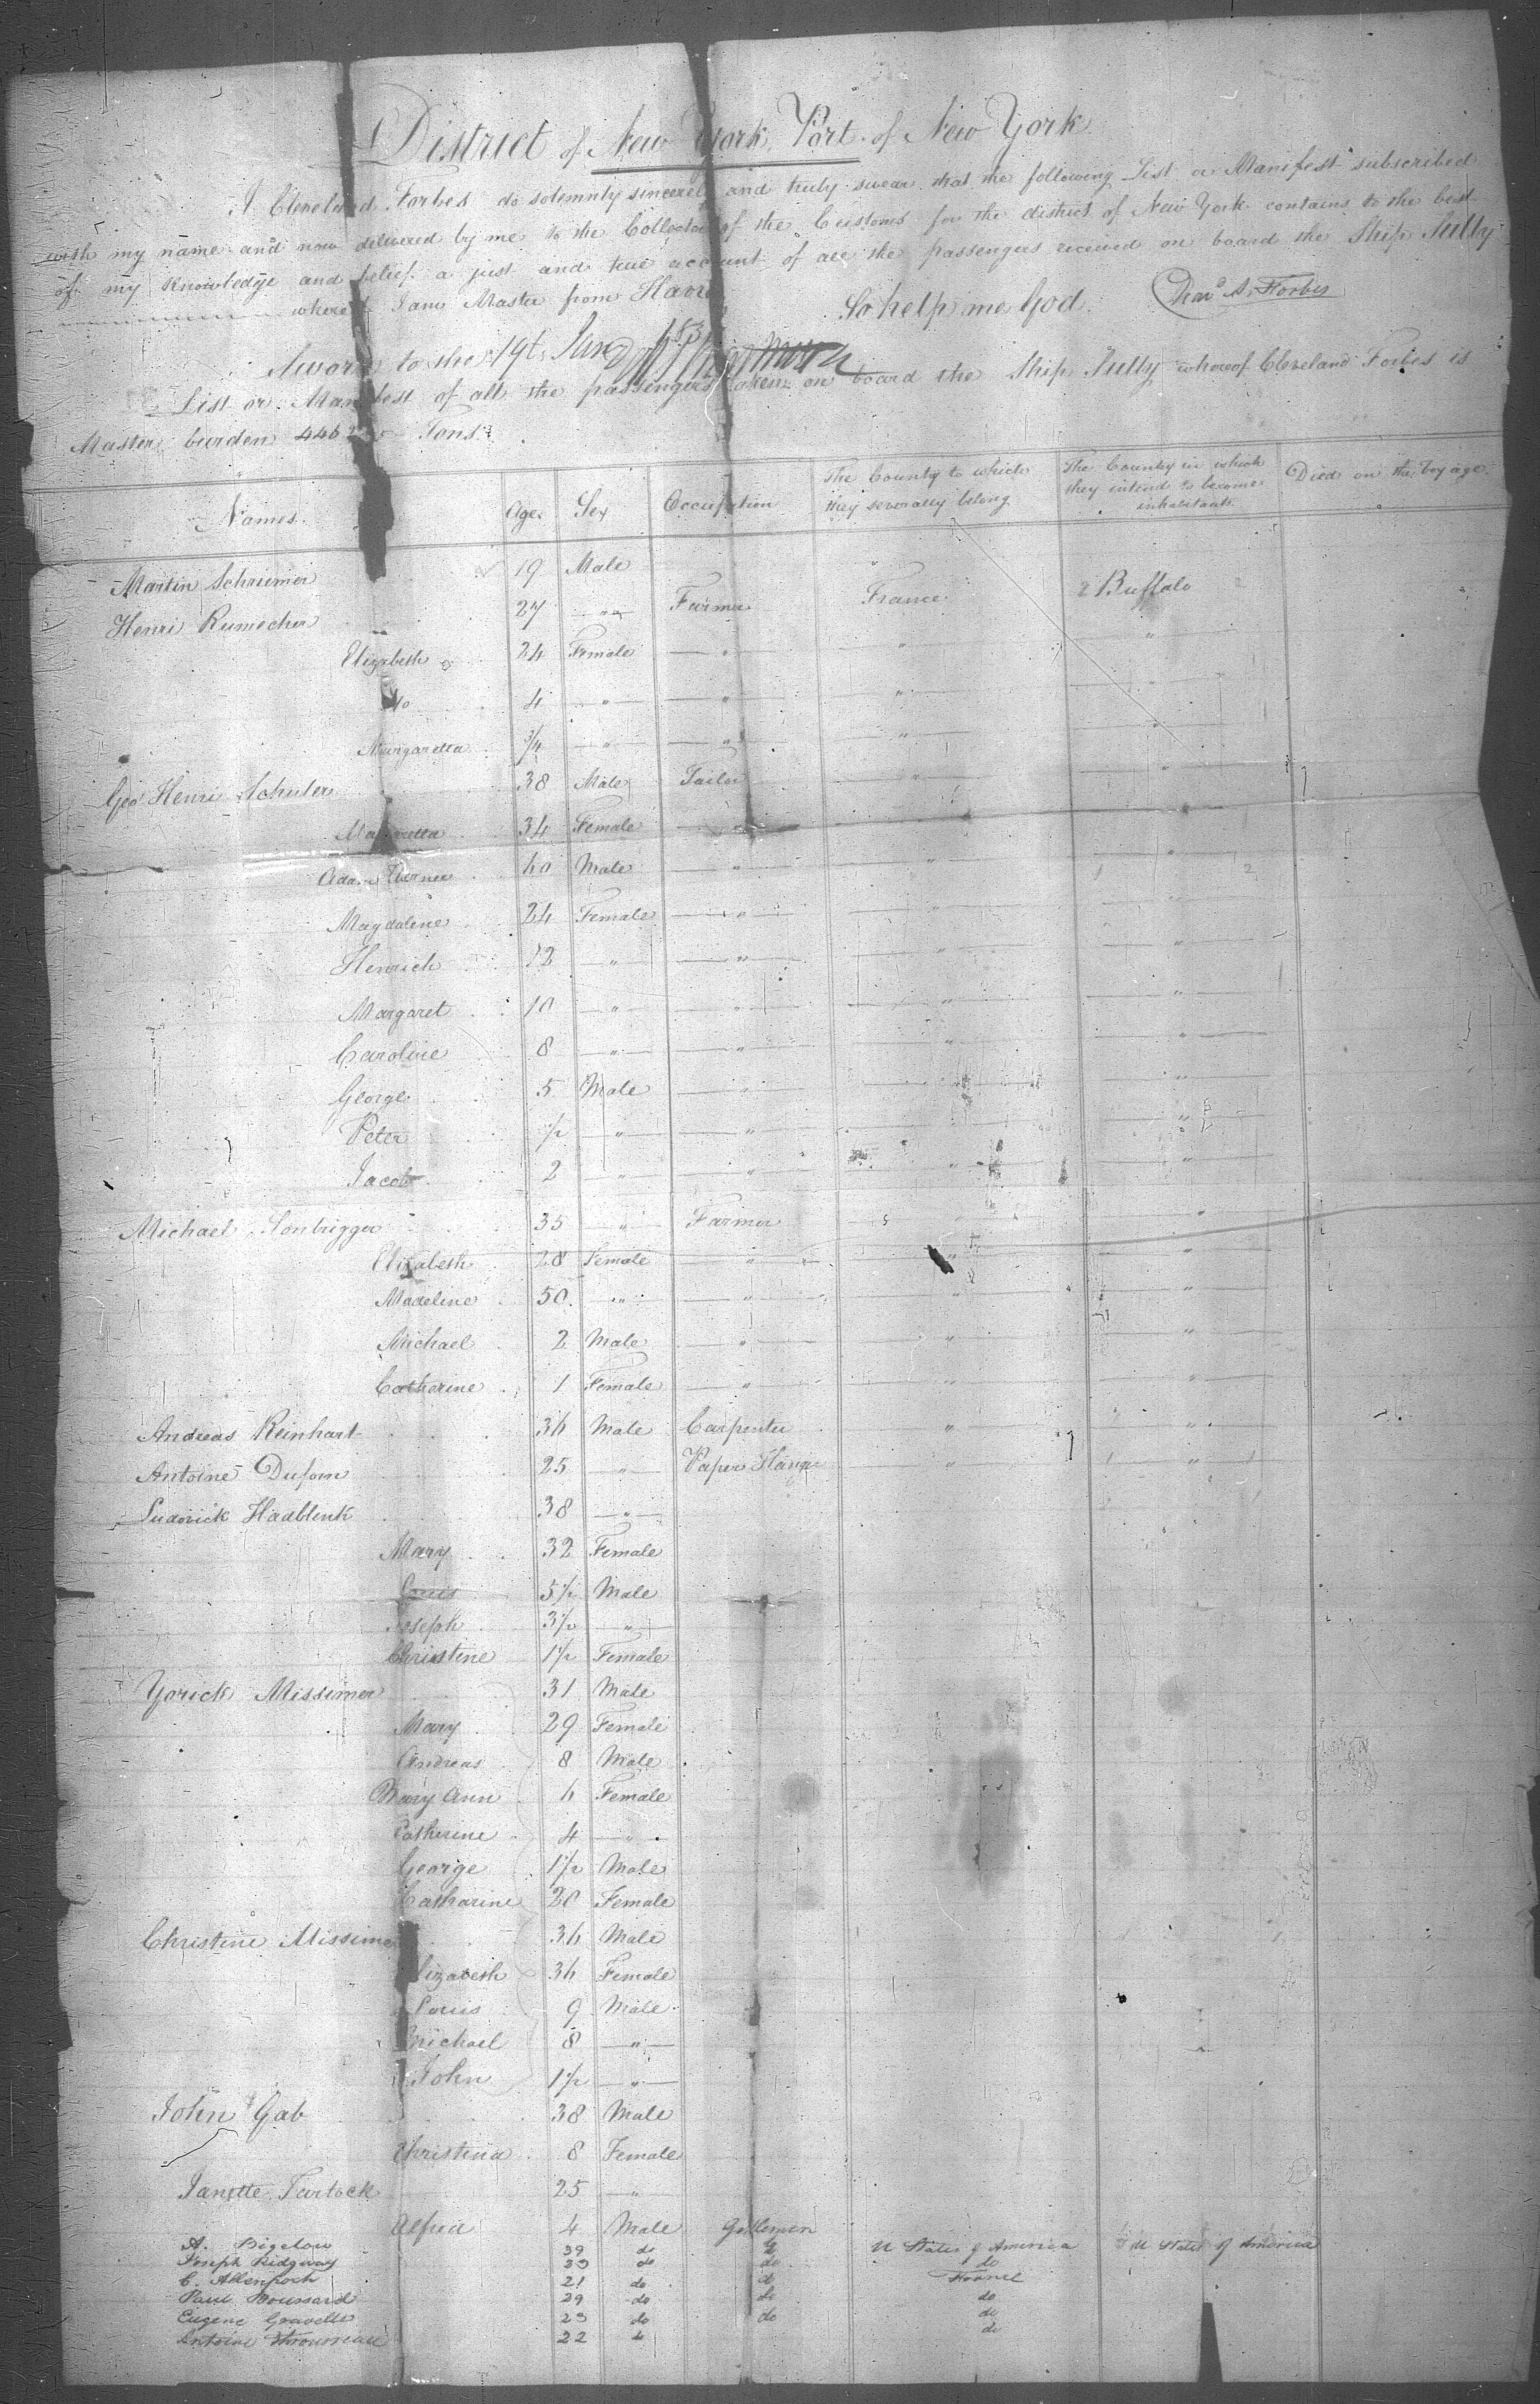 District of New York, Port of New York
I Cleveland Forbes do solemnly sincerely and truly swear that the following List or Manifest subscribed
with my name and now delivered by me to the Collector of the Customs for the district of New York contains to the best
of my knowledge and belief a just and true account of all the passengers received on board the Ship Sully
whereof I am Master from Havre
So help me God. Forbes
Sworn to the 19th Jan
List or Manifest of all the passengers taken on board the Ship Sully whereof Cleveland Forbes is
Master burden 446 Tons
Names. Age. Sex Occupation The County to which they severally belong The Country in which they intend to become inhabitants Died on the Voyage.
Martin 19 Male
Henri Rumecher 27 " Farmer France Buffalo
Elizabeth 24 Female " " "
Do 4 " " " "
Margaretta 3/4 " " " "
Geo Henri Schuler 38 Male Tailor " "
Margretta 34 Female
Adam 40 Male " " "
Magdalene 24 Female " " "
Henrich 12 " " " "
Margaret 10 " " " "
Caroline 8 " " " "
George 5 Male " " "
Peter 1/2 " " " "
Jacob 2 " " " "
Michael Sonbrigger 35 " Farmer " "
Elizabeth 28 Female " " "
Madeline 50 " " " "
Michael 2 Male " " "
Catherine 1 Female " " "
Andreas Reinhart 36 Male Carpenter " "
Antoine 25 " Paper Hanger " "
Ludovick Hadblenk 38 "
Mary 32 Female
Louis 5 1/2 Male
Joseph 3 1/2 "
Christine 1 1/2 Female
Yorick Missimer 31 Male
Mary 29 Female
Andreas 8 Male
Mary Ann 6 Female
Catherine 4 "
George 1 1/2 Male
Catharine 20 Female
Christine Missimer 36 Male
Elizabeth 36 Female
Louis 9 Male
Michael 8 "
John 1 1/2 "
John Gab 38 Male
Christina 8 Female
Janette Turlock 25 "
Alfred 4 Male Gentlemen
A. Bigelow 39 do do U States of America U States of America
Joseph Ridgway 33 do do do
C. Allenpoch 21 do do France
Paul Broussard 29 do do do
Eugene Gravelle 23 do do do
Antoine 22 do do